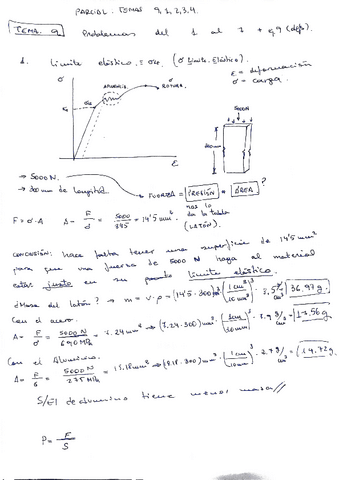 PARCIAL: TEMAS 9,1,2,3,4.
TEMA. 9 Problemas del 1 al 7 + 9,9 (dép).
1. Límite elástico = σe. (σ Límite Elástico).
ε = deformación
σ = carga.
σ
FLUENCIA
σ ROTURA.
ε
5000N
300mm
→ 5000N.
→ 300mm de longitud.
FUERZA = PRESIÓN * ÁREA ?
nos lo da la tabla (LATÓN).
F = σ·A A = F/σ = 5000/345 = 14'5 mm²
CONCLUSIÓN: hace falta tener una superficie de 14'5 mm²
para que una fuerza de 5000 N haga al material
estar justo en su punto límite elástico.
¿Masa del latón? → m = V·ρ = (14'5·300) mm³ (1cm/10mm)³ · 8,5 g/cm³ = 36,97g.
Con el acero.
A = F/σ = 5000N/690MPa = 7.24 mm² → (7.24·300) mm³ · (1cm/10mm)³ · 7,9 g/cm³ = 17,56g
Con el Aluminio.
A = F/σ = 5000N/275MPa = 18.18mm² → (18.18·300) mm³ · (1cm/10mm)³ · 2.7 g/cm³ = 14,72g
S/ El de aluminio tiene menos masa //
P = F/S